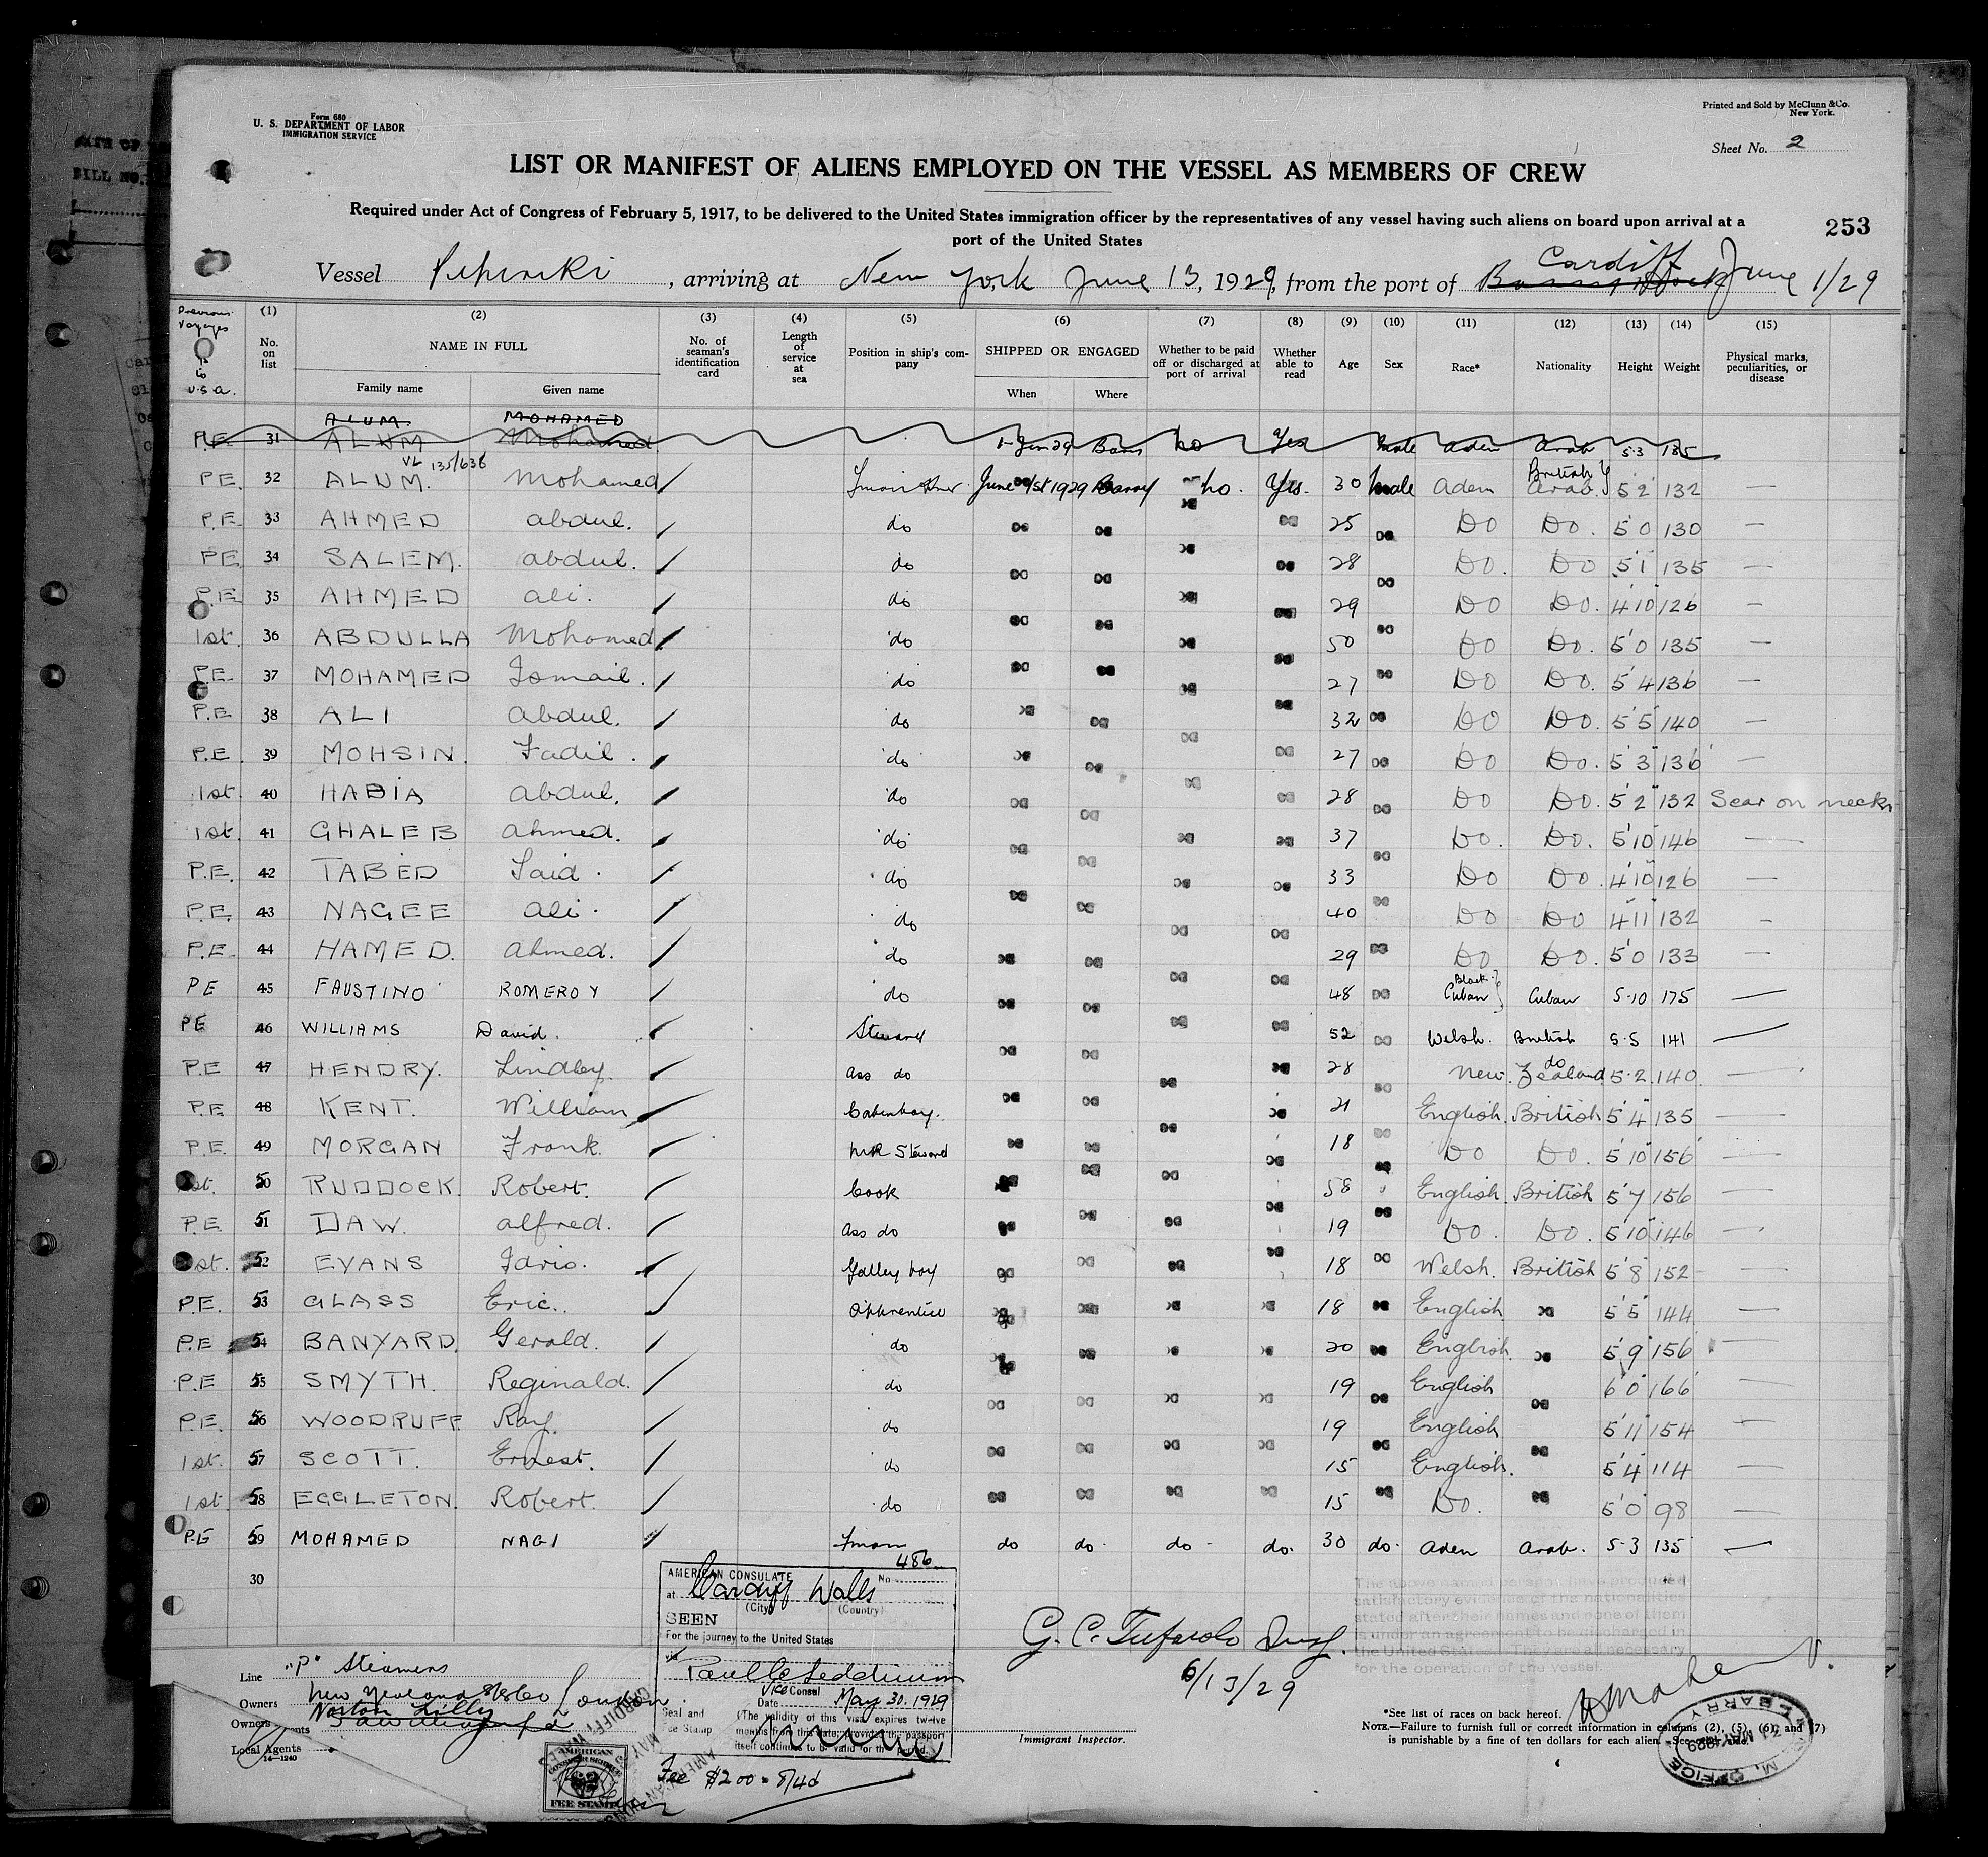 Form 680
U. S. DEPARTMENT OF LABOR
IMMIGRATION SERVICE
Printed and Sold by McClunn & Co.
New York.
Sheet No. 2
LIST OR MANIFEST OF ALIENS EMPLOYED ON THE VESSEL AS MEMBERS OF CREW
Required under Act of Congress of February 5, 1917, to be delivered to the United States immigration officer by the representatives of any vessel having such aliens on board upon arrival at a
port of the United States
253
Vessel Pipiriki, arriving at New York June 13, 1929, from the port of Cardiff June 1/29
Previous Voyages to U.S.A.
(1) No. on list
(2) NAME IN FULL Family name Given name
(3) No. of seaman's identification card
(4) Length of service at sea
(5) Position in ship's company
(6) SHIPPED OR ENGAGED When Where
(7) Whether to be paid off or discharged at port of arrival
(8) Whether able to read
(9) Age
(10) Sex
(11) Race*
(12) Nationality
(13) Height
(14) Weight
(15) Physical marks, peculiarities, or disease
ALUM. MOHAMED
P.E. 31 ALUM Mohamed 1-Jun 29 no Yes Male Aden Arab 5.3 135
VL 135/636
P.E. 32 ALUM. Mohamed June 1st 1929 Barry no. Yes. 30 Male Aden British Arab. 5 2 132 —
P.E. 33 AHMED Abdul. do do do do do 25 do Do Do. 5'0 130 —
P.E. 34 SALEM. Abdul. do do do do do 28 do Do. Do 5'1 135 —
P.E. 35 AHMED Ali. do do do do do 29 Do Do. 4'10 126 —
1st. 36 ABDULLA Mohomed do do do do do 50 do Do Do. 5'0 135 —
P.E. 37 MOHAMED Ismail. do do do do do 27 do Do Do. 5'4 136 —
P.E 38 ALI Abdul. do do do do do 32 do Do Do. 5'5 140 —
P.E. 39 MOHSIN. Fadil. do do do do do 27 do Do Do. 5'3 136 —
1st. 40 HABIA Abdul. do do do do do 28 do Do Do. 5'2 132 Scar on neck
1st. 41 GHALEB Ahmed. do do do do do 37 do Do. Do. 5'10 146 —
P.E. 42 TABED Said. do do do do do 33 do Do Do. 4'10 126 —
P.E. 43 NAGEE Ali. do do do do do 40 do Do Do 4'11 132 —
P.E. 44 HAMED. Ahmed. do do do do do 29 do Do Do. 5'0 133 —
PE 45 FAUSTINO ROMEROY do do do do do 48 do Black Cuban Cuban 5-10 175 —
PE 46 WILLIAMS David. Steward do do do do 52 do Welsh. British 5.5 141 —
P.E 47 HENDRY. Lindley. Ass do do do do do 28 do New Zealand do 5-2 140 —
P.E. 48 KENT. William Cabinboy. do do do do 21 English. British 5'4 135 —
P.E. 49 MORGAN Frank. M.R Steward do do do do 18 do Do Do. 5'10 156 —
1st. 50 RUDDOCK. Robert. Cook do do do do 58 English. British 5'7 156 —
P.E. 51 DAW. Alfred. Ass do do do do do 19 do Do. Do. 5'10 146 —
1st. 52 EVANS Idris. Galley boy do do do do 18 do Welsh. British 5'8 152 —
P.E. 53 GLASS Eric. Apprentice do do do do 18 do English do 5'5 144 —
P.E 54 BANYARD. Gerald. do do do do do 20 do English. do 5'9 156 —
P.E 55 SMYTH. Reginald. do do do do do 19 do English do 6'0 166 —
P.E. 56 WOODRUFF. Ray. do do do do do 19 English do 5'11 154 —
1st. 57 SCOTT. Ernest. do do do do do 15 do English. do 5'4 114 —
1st. 58 EGGLETON. Robert. do do do do do 15 do Do. do 5'0 98 —
P.E 59 MOHAMED NAGI Fman do do do do. 30 do. Aden Arab. 5-3 135 —
30
AMERICAN CONSULATE No. 486
at Cardiff Wales
(City) (Country)
SEEN
For the journey to the United States
via
Vice Consul
Date May 30. 1929
Seal and Fee Stamp
(The validity of this visa expires twelve
months from this date, provided the passport
itself continues to be valid for the period.
Fee $2.00 = 8/4d
AMERICAN
CONSULAR SERVICE
FEE STAMP
Line "P" Steamers
Owners New Zealand London
Norton Lilly
Local Agents
14—1240
6/13/29
Immigrant Inspector.
The above named persons have produced
satisfactory evidence of the nationalities
stated after their names and none of them
is under an agreement to be discharged in
the United States. They are all necessary
for the operation of the vessel.
*See list of races on back hereof.
NOTE.—Failure to furnish full or correct information in columns (2), (5), (6), and (7)
is punishable by a fine of ten dollars for each alien.
M. M. OFFICE BARRY
31 MAY 1929